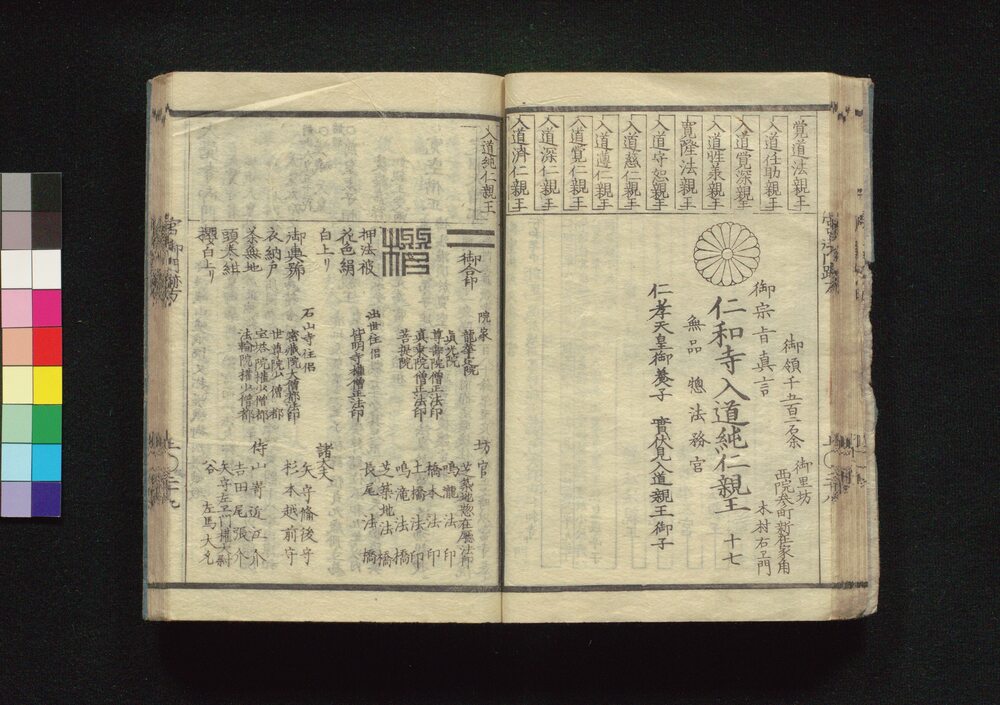 覚道法親王
入道任助親王
入道覚深親王
入道性承親王
寛隆法親王
入道守恕親王
入道慈仁親王
入道遵仁親王
入道覚仁親王
入道深仁親王
入道済仁親王
御領千五百二石余
御里坊
西院参町新在家角
木村右ヱ門
御宗旨真言
仁和寺入道純仁親王
十七
無品 惣法務官
仁孝天皇御養子 實伏見入道親王御子
入道純仁親王
御合印
押法被
花色絹
白上リ
御輿舁
衣納戸
茶無地
頭巻紺
櫻白上リ
院家
真光院
尊寿院僧正法印
真乗院僧正法印
菩提院
出世住侶
皆明寺権僧正法印
石山寺住侶
密蔵院大僧都法印
世尊院少僧都
宝塔院権少僧都
法輪院権少僧都
坊官
芝築地惣在廳法印
鳴瀧法印
橋本法印
土橋法印
鳴滝法橋
芝築地法橋
長尾法橋
諸大夫
矢守備後守
杉本越前守
侍
山嵜近江介
吉田尾張介
矢守左ヱ門権大尉
谷 左馬大允